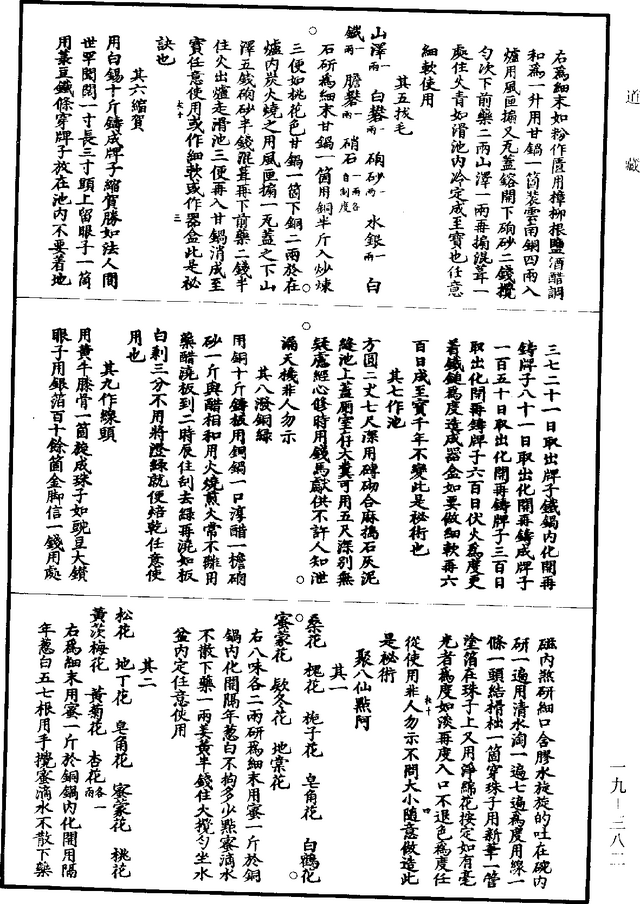 道藏
右爲細末如粉作匱用樟柳根鹽酒醋調
和爲一升用甘鍋一箇裝雲南銅四兩入
爐用風匣搧又瓦蓋鎔開下硇砂二錢攪
勻次下前藥二兩山澤一兩再搧混茸一
處住火青如滑池內冷定成至寶也任意
細軟使用
其五拔毛
山澤一兩 白礬一兩 硇砂一兩 水銀一兩 白
鐵一兩 膽礬一兩 硝石一兩各自制度
石研爲細末甘鍋一箇用銅半斤入炒煉
三便如桃花色甘鍋一箇下銅二兩於在
爐內炭火燒之用風匣搧一瓦蓋之下山
澤五錢硇砂半錢混茸再下前藥二錢半
住火出爐走滑池三便再入甘鍋消成至
寶任意使用或作細軟或作器盒此是祕
訣也
其六縮賀
用白錫十斤鑄成牌子縮賀勝如法人間
世罕聞閣一寸長三寸頭上留眼子一箇
用蓽豆鐵條穿牌子放在池內不要著地
三七二十一日取出牌子鐵鍋內化開再
鑄牌子八十一日取出化開再鑄成牌子
一百五十日取出化開再鑄牌子三百日
取出化開再鑄牌子六百日伏火爲度更
著鐵鎚爲度造成器盒如要做細軟再六
百日成至寶千年不變此是祕術也
其七作池
方圓二丈七尺深用磚砌合麻擣石灰泥
縫池上蓋厠室存大糞可用五尺深別無
疑慮經心修時用錢馬獻供不許人知泄
漏天機非人勿示
其八潑銅綠
用銅十斤鑄板用鍋鍋一口淳醋一擔硇
砂一斤與醋相和用火燒煎火常不離用
藥醋澆板到二時辰住刮去綠再澆如板
白剩三分不用將澄綠就便焙乾任意使
用也
其九作線頭
用黃牛膝骨一箇旋成珠子如豌豆大鑽
眼子用銀箔百十餘箇金脚信一錢用處
磁內煎研細口含膠水旋旋的吐在碗內
研一遍用清水淘一遍七遍爲度用線一
條一頭結㩱柮一箇穿珠子用新筆一管
塗箔在珠子上又用淨綿花按定如有毫
光者爲度如淡再度入口不退色爲度任
從使用非人勿示不問大小隨意做造此
是祕術
聚八仙點阿
其一
桑花 槐花 梔子花 皂角花 白鶴花
蜜蒙花 欵冬花 地棠花
右八味各二兩研爲細末用蜜一斤於銅
鍋內化開隔年蔥白不拘多少點蜜滴水
不散下藥一兩美黃半錢住火攪勻坐水
盆內定任意使用
其二
松花 地丁花 皂角花 蜜蒙花 桃花
黃茨梅花 黃菊花 杏花各一兩
右爲細末用蜜一斤於銅鍋內化開用隔
年蔥白五七根用手攪蜜滴水不散下藥
一九-三八二